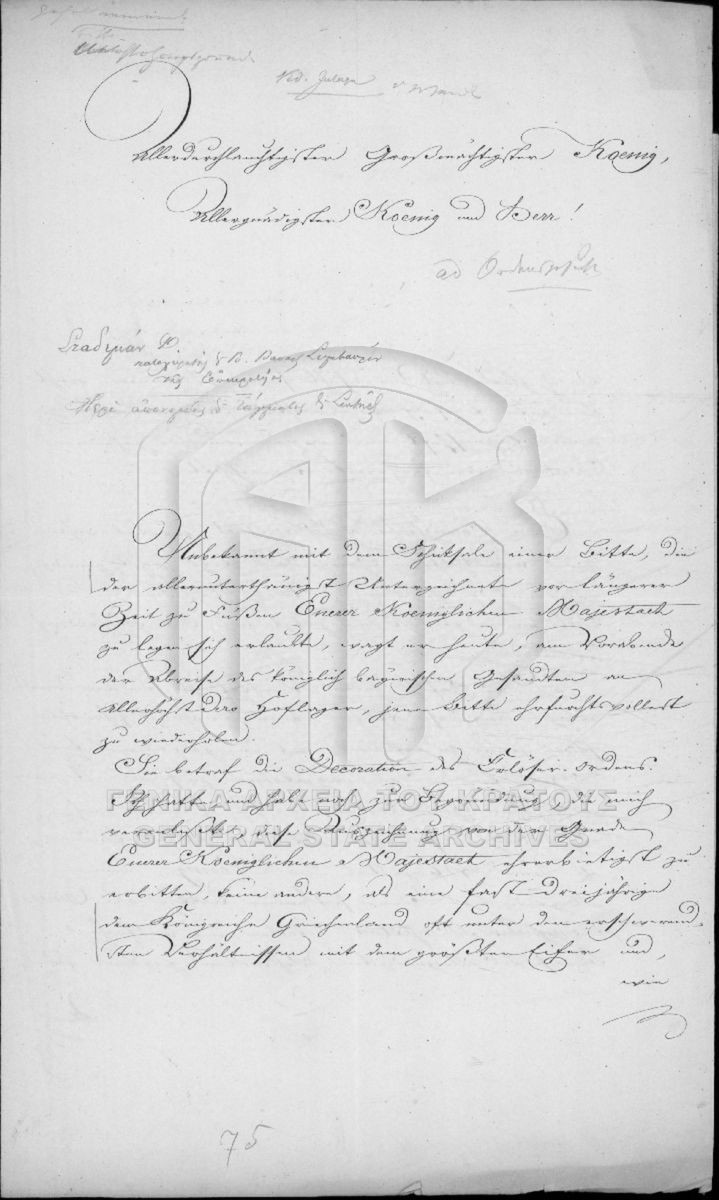 Allerdurchlauchtigster Großmächtigster Koenig,
Allergnädigster Koenig und Herr!
ad Ordensgesuch
Unbekannt mit dem Schiksale einer Bitte, die
der allerunterthänigst Unterzeichnete vor längerer
Zeit zu Füßen Euerer Koeniglichen Majestaet
zu legen sich erlaubte, wagt er heute, am Vorabende
der Abreise des königlich bayerischen Gesandten an
Allerhöchst Dero Hoflager, jene Bitte ehrfurchtsvollest
zu wiederholen.
Sie betraf die Decoration des Erlöser-Ordens.
Ich hatte und habe noch zur Begründung, die mich
veranlaßte, diese Auszeichnung von der Gnade
Euerer Koeniglichen Majestaet ehrerbietigst zu
erbitten, keine andere, als eine fast dreijährige
dem Königreiche Griechenland oft unter den erschwerend-
sten Verhältnissen mit dem größten Eifer und,
wie
75
ΓΕΝΙΚΑ ΑΡΧΕΙΑ ΤΟΥ ΚΡΑΤΟΥΣ
GENERAL STATE ARCHIVES